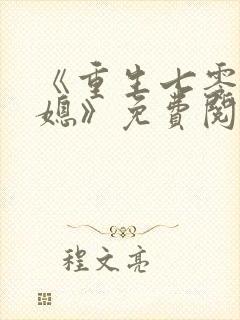 《重生七零
媳》免費閱
程文亮